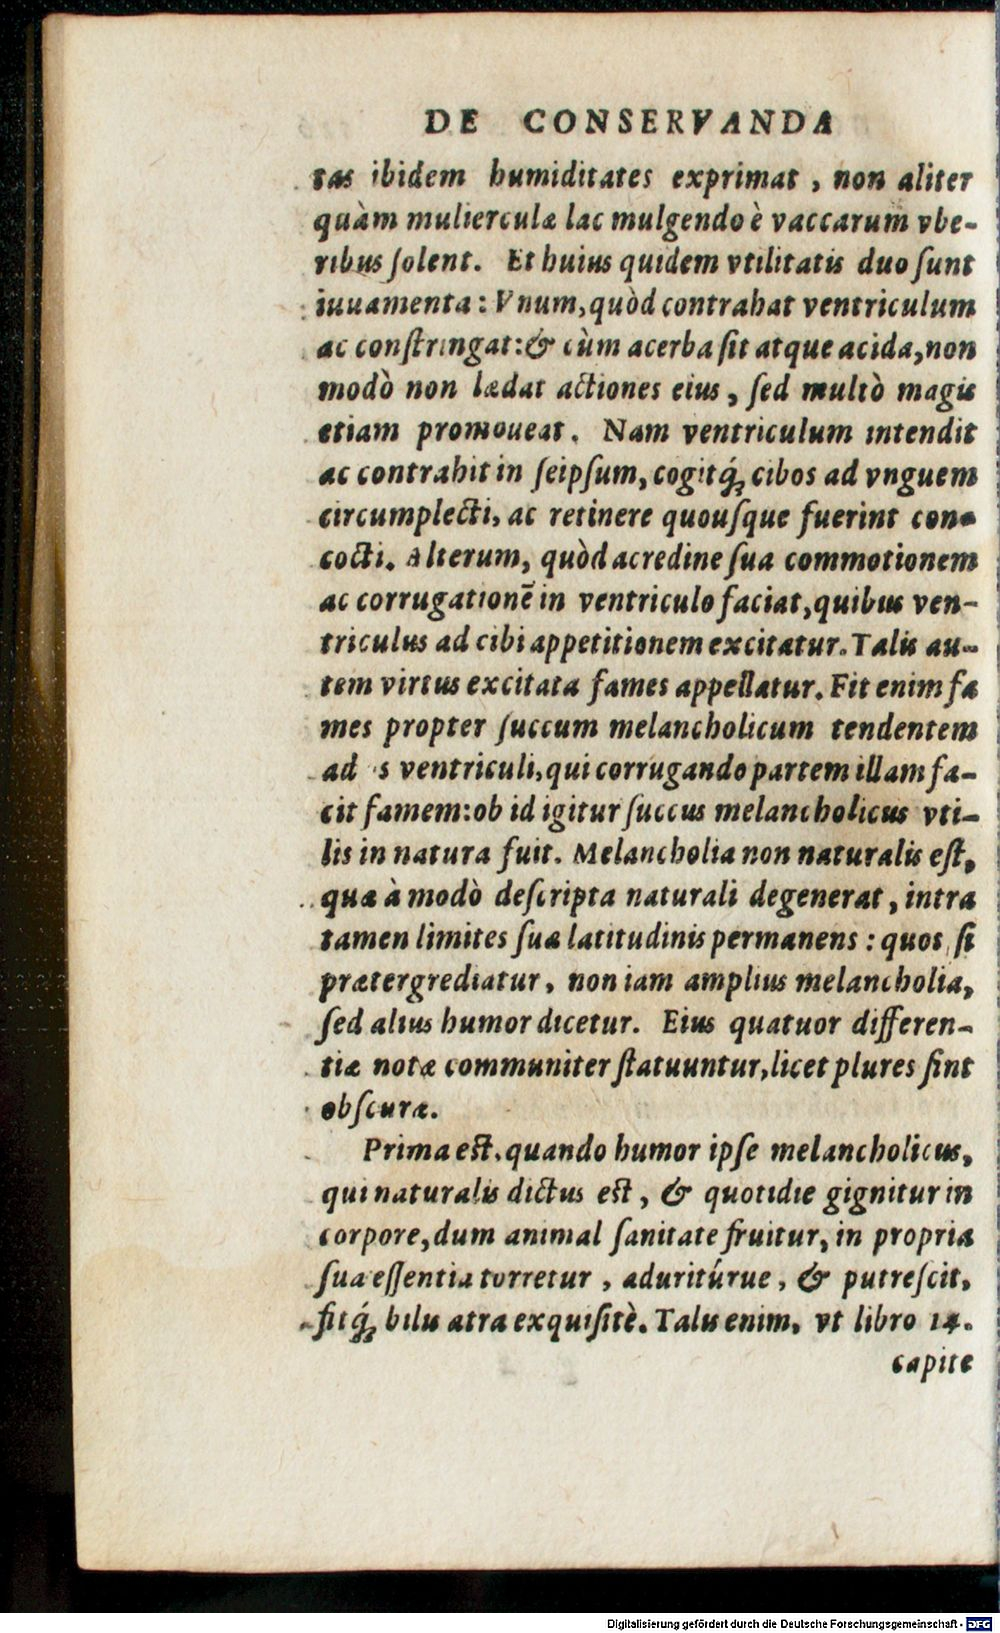 DE CONSERVANDA
tas ibidem humiditates exprimat, non aliter
quàm mulierculæ lac mulgendo è vaccarum vbe-
ribus ſolent. Et huius quidem vtilitatis duo ſunt
iuuamenta: Vnum, quòd contrahat ventriculum
ac conſtringat: & cùm acerba ſit atque acida, non
modò non lædat actiones eius, ſed multò magis
etiam promoueat. Nam ventriculum intendit
ac contrahit in ſeipſum, cogitq́; cibos ad vnguem
circumplecti, ac retinere quouſque fuerint con-
cocti. Alterum, quòd acredine ſua commotionem
ac corrugationē in ventriculo faciat, quibus ven-
triculus ad cibi appetitionem excitatur. Talis au-
tem virtus excitata fames appellatur. Fit enim fa
mes propter ſuccum melancholicum tendentem
ad s ventriculi, qui corrugando partem illam fa-
cit famem: ob id igitur ſuccus melancholicus vti-
lis in natura fuit. Melancholia non naturalis eſt,
quæ à modò deſcripta naturali degenerat, intra
tamen limites ſuæ latitudinis permanens: quos ſi
prætergrediatur, non iam amplius melancholia,
ſed alius humor dicetur. Eius quatuor differen-
tiæ notæ communiter ſtatuuntur, licet plures ſint
obſcuræ.
Prima eſt, quando humor ipſe melancholicus,
qui naturalis dictus eſt, & quotidie gignitur in
corpore, dum animal ſanitate fruitur, in propria
ſua eſſentia torretur, aduritúrue, & putreſcit,
fitq́; bilis atra exquiſitè. Talis enim, vt libro 14.
capite
Digitalisierung gefördert durch die Deutsche Forschungsgemeinschaft - DFG